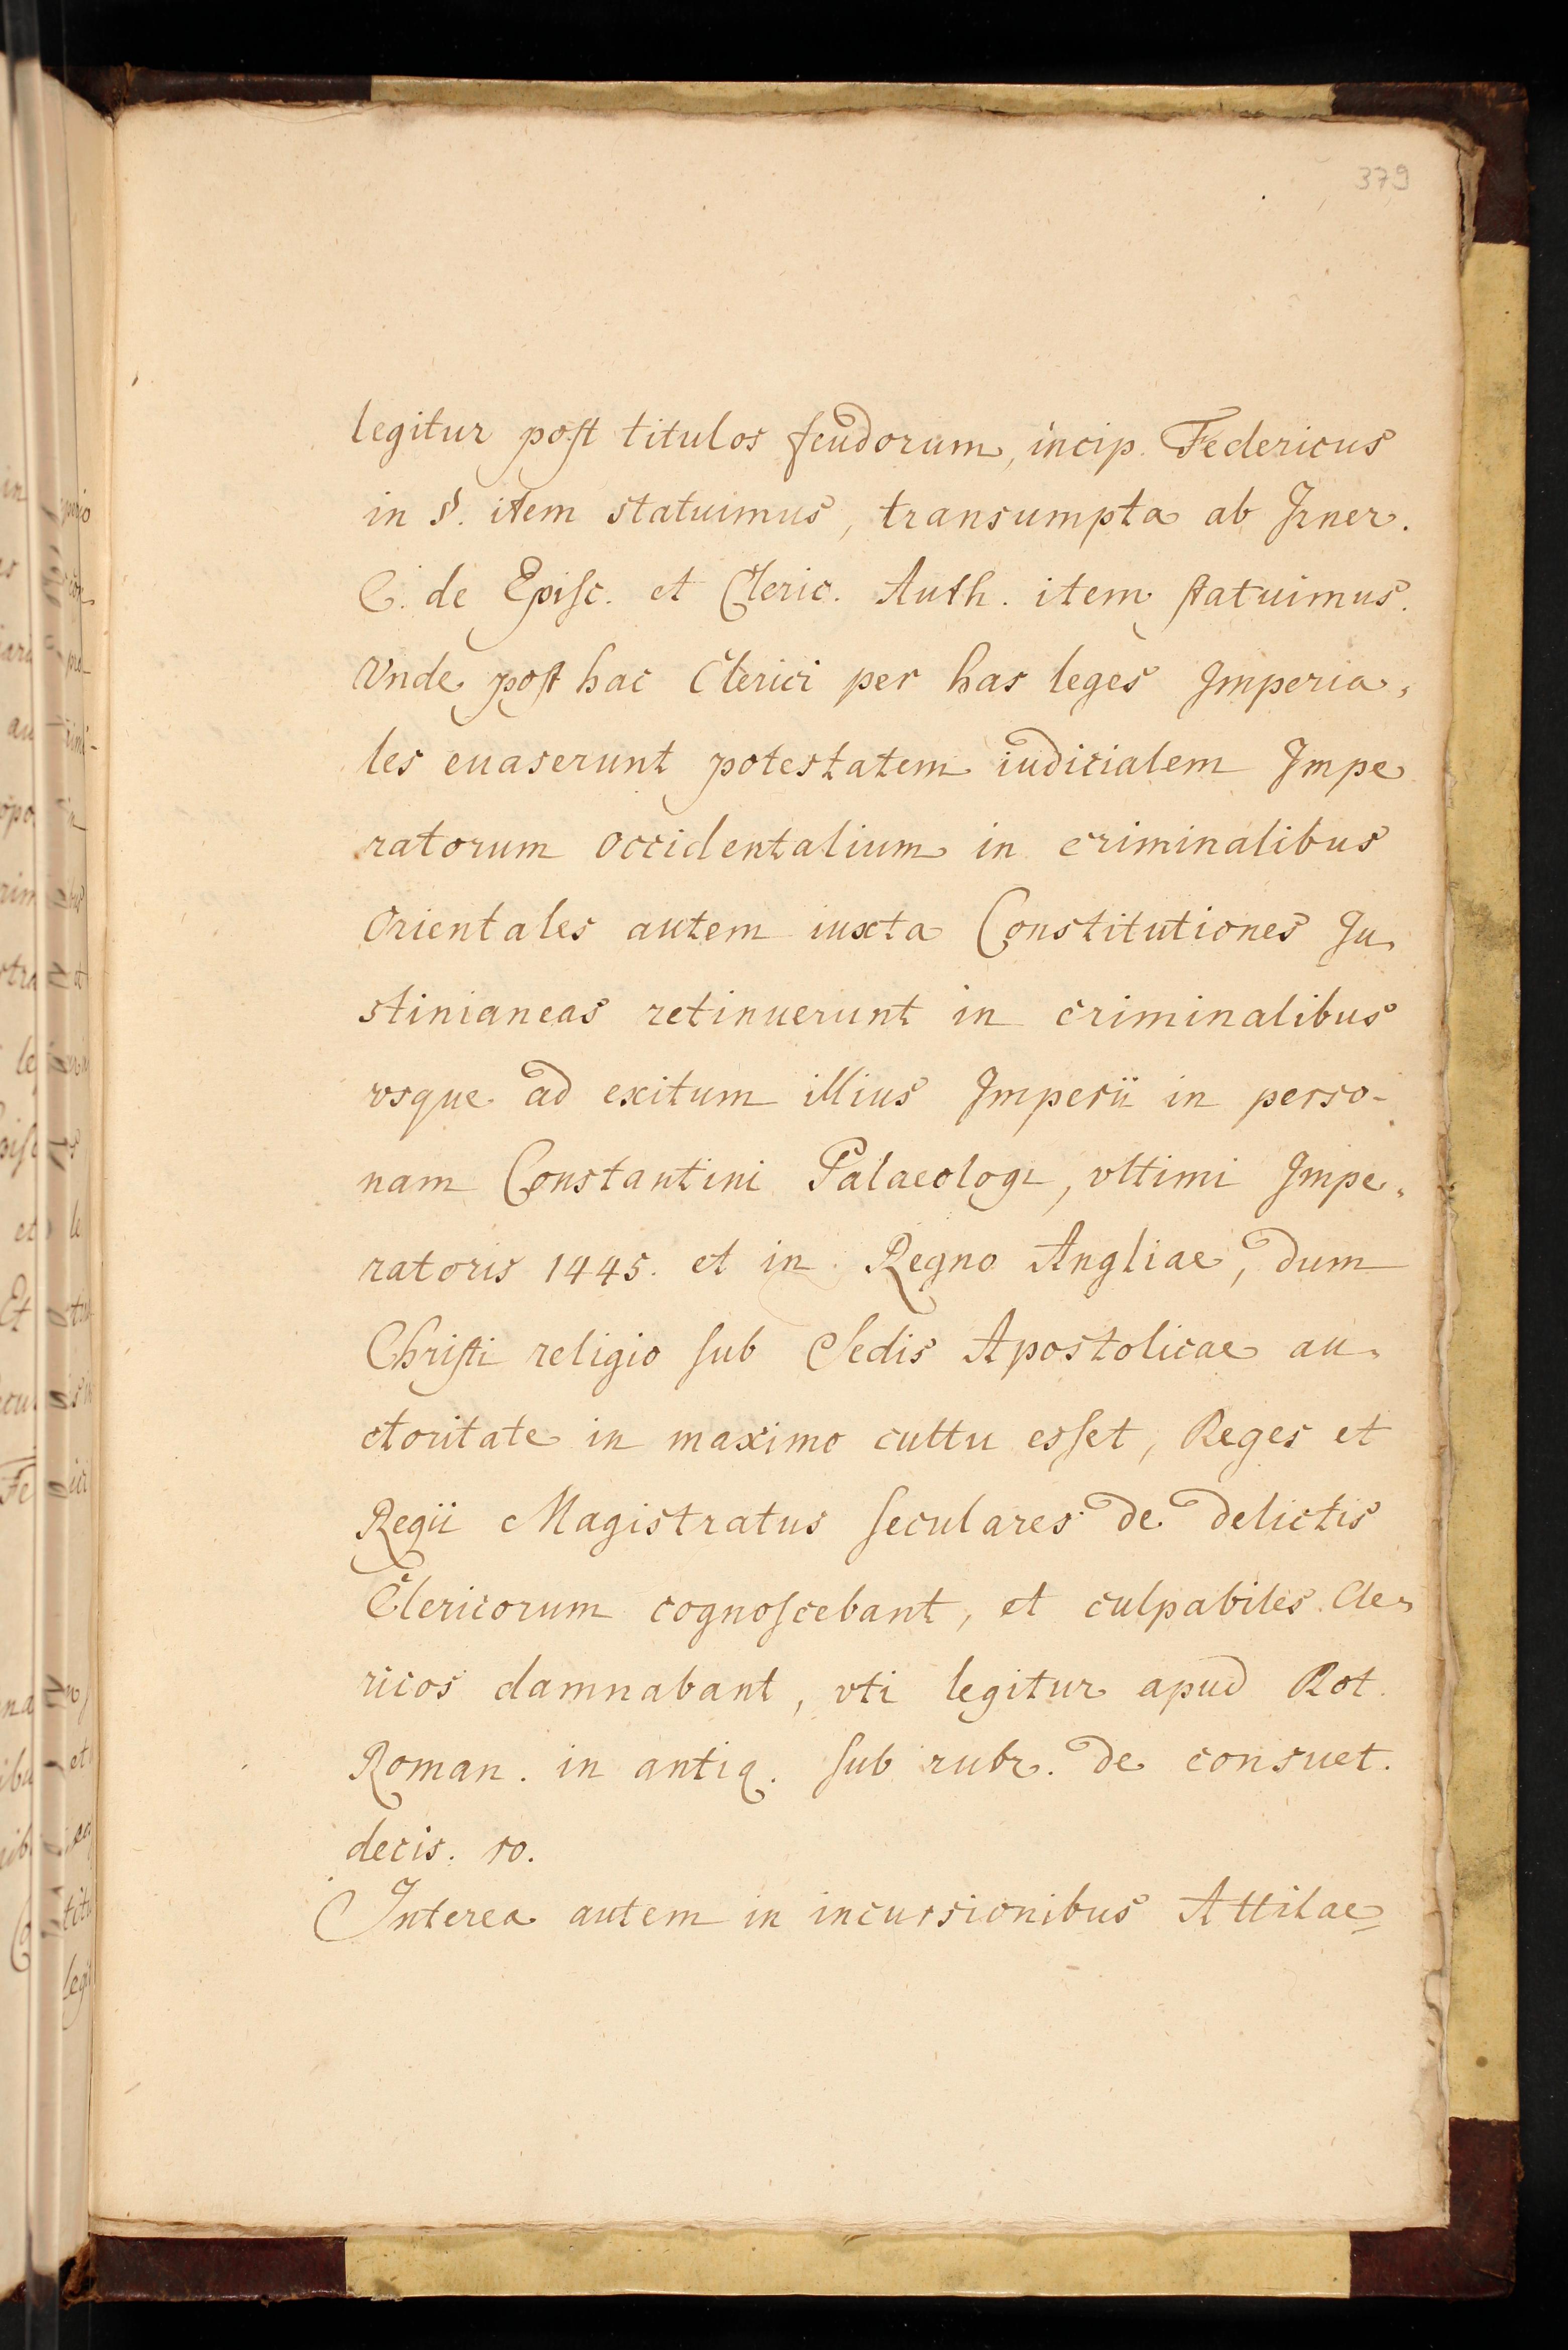 379
legitur post titulos feudorum, incip. Federicus
in §. item statuimus, transumpta ab Irner.
C. de Episc. et Cleric. Auth. item statuimus.
Vnde post hac Clerici per has leges Imperia,
les euaserunt potestatem iudicialem Impe
ratorum occidentalium in criminalibus
Orientales autem iuxta Constitutiones Ju,
stinianeas retinuerunt in criminalibus
vsque ad exitum illius Imperii in perso-
nam Constantini Palaeologi, vltimi Impe,
ratoris 1445. et in Regno Angliae, dum
Christi religio sub Sedis Apostolicae au,
ctoritate in maximo cultu esset, Reges et
Regii Magistratus seculares de delictis
Clericorum cognoscebant, et culpabiles Cle,
ricos damnabant, vti legitur apud Rot.
Roman. in antiq. sub rubr. de consuet.
decis. 10.
Interea autem in incursionibus Attilae